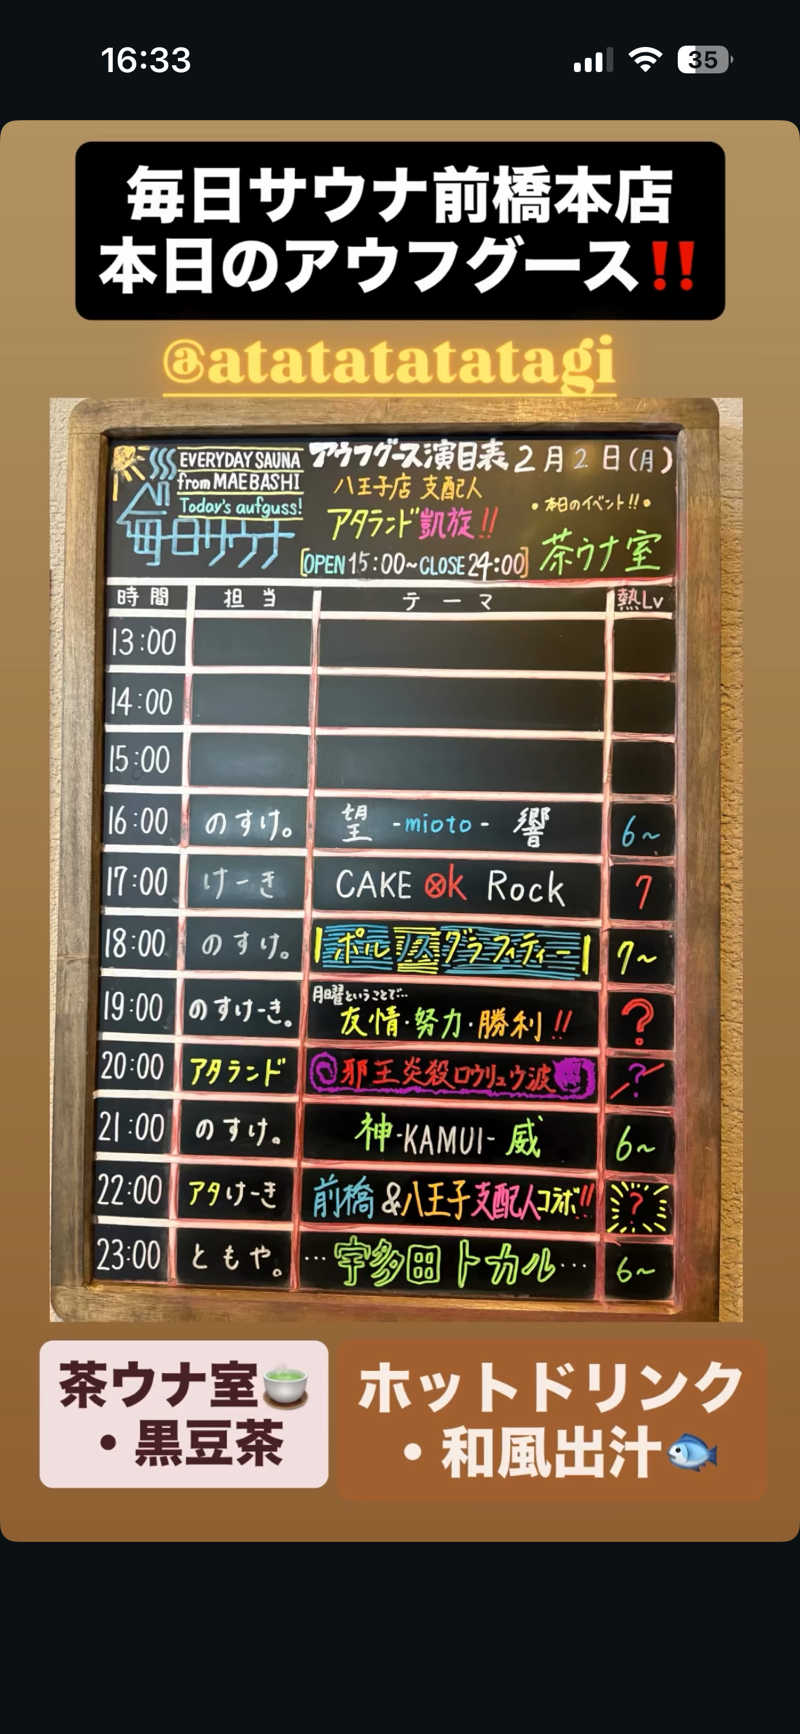 16:33
35
毎日サウナ前橋本店
本日のアウフグース‼️
@atatatatatatagi
EVERYDAY SAUNA
from MAEBASHI
Today's aufguss!
毎日サウナ
アウフグース演目表 2月2日(月)
八王子店 支配人
アタランド凱旋!!
[OPEN 15:00~CLOSE 24:00]
・本日のイベント!!・
茶ウナ室
時間 担当 テーマ 熱Lv
13:00
14:00
15:00
16:00 のすけ。 望 -mioto- 響 6~
17:00 けーき CAKE OK Rock 7
18:00 のすけ。 ポルノスグラフィティー 7~
19:00 のすけーき。 月曜ということで… 友情・努力・勝利!! ?
20:00 アタランド 邪王炎殺ロウリュウ波 ?
21:00 のすけ。 神-KAMUI-威 6~
22:00 アタけーき 前橋&八王子支配人コラボ!! ?
23:00 ともや。 …宇多田トカル… 6~
茶ウナ室🍵
・黒豆茶
ホットドリンク
・和風出汁🐟